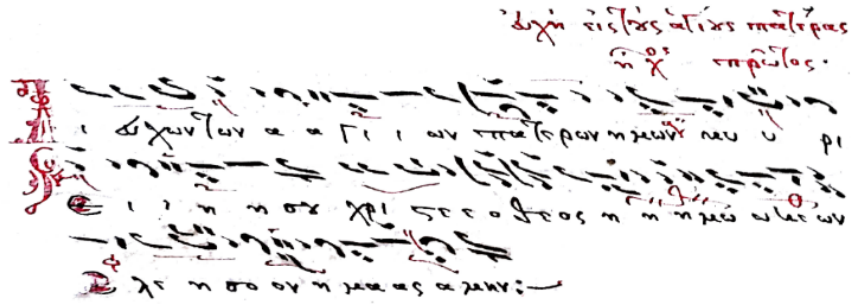 εὐχὴ εἰς τοὺς ἁγίους πατέρας
ἦχος πρῶτος·
Δι ευχων των α α γι ι ων πατερων ημων κυ υ ρι
ε ι ι η η σου χρι στε ο θεος η η μω
ε λε η σο ον η μα ας α μην: